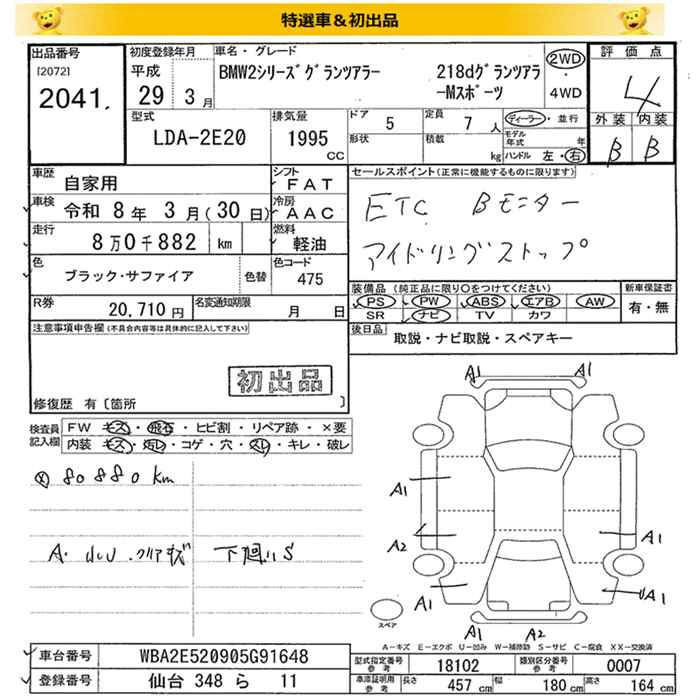 特選車＆初出品
出品番号
[2072]
2041.
初度登録年月
平成
29 3月
車名・グレード
BMW2シリーズグランツアラー 218dグランツアラ
-Mスポーツ
2WD
・
4WD
評価点
4
外装 内装
B B
型式
LDA-2E20
排気量
1995
CC
ドア 5
定員 7人
ディーラー・並行
形状
積載 kg
モデル年式 年
ハンドル 左・右
車歴 自家用
シフト FAT
車検 令和 8年 3月(30日)
冷房 AAC
走行 8万0千882 km
燃料 軽油
色 ブラック・サファイア 色替
色コード 475
R券 20,710円
名変通知期限 月 日
セールスポイント(正常に機能するものに限ります)
ETC Bモニター
アイドリングストップ
装備品 (純正品に限り○をつけてください)
PS PW ABS エアB AW
SR ナビ TV カワ
新車保証書
有・無
後日品 取説・ナビ取説・スペアキー
注意事項申告欄(不具合内容等は具体的に記入して下さい)
初出品
修復歴 有〔箇所 〕
検査員記入欄
FW キズ・飛石・ヒビ割・リペア跡・×要
内装 キズ・汚レ・コゲ・穴・スレ・キレ・破レ
80880km
下廻りS
A1 A1
A1
A2
A1
A1
A1
A1 A2
スペア
A-キズ E-エクボ U-凹み W-補修跡 S-サビ C-腐食 XX-交換済
車台番号 WBA2E520905G91648
登録番号 仙台 348 ら 11
型式指定番号参考 18102
類別区分番号参考 0007
車庫証明用参考 長さ 457cm 幅 180cm 高さ 164cm